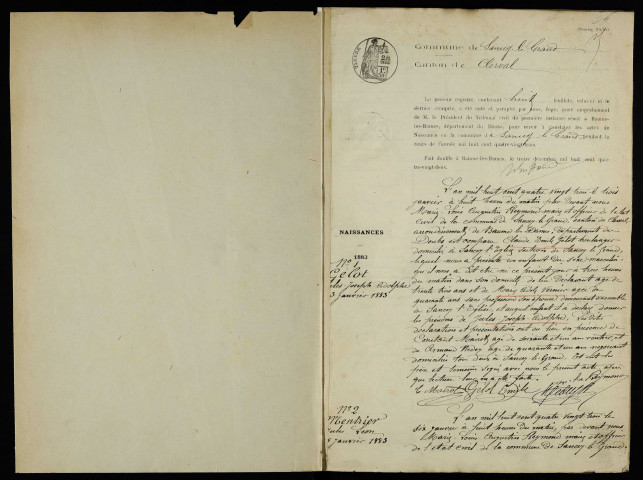 Commune de Sancey le Grand
Canton de Clerval
Le présent registre, contenant huit feuillets, celui-ci et le
dernier compris, a été coté et paraphé par nous, Juge, pour empêchement
de M. le Président du Tribunal civil de première instance séant à Baume-
les-Dames, département du Doubs, pour servir à constater les actes de
Naissances en la commune de Sancey le Grand pendant le
cours de l'année mil huit cent quatre-vingt-trois.
Fait double à Baume-les-Dames, le treize décembre mil huit cent quatre-
vingt-deux.
NAISSANCES
1883
N° 1
Gelot
Jules Joseph Adolphe
3 janvier 1883
L'an mil huit cent quatre vingt trois le trois
janvier à huit heures du matin par devant nous
Marie Louis Augustin Reymond maire et officier de l'état
civil de la commune de Sancey le Grand, canton de Clerval,
arrondissement de Baume les Dames, département du
Doubs est comparu Claude Emile Gelot boulanger
domicilié à Sancey l'Eglise section de Sancey le Grand,
lequel nous a présenté un enfant du sexe masculin
qui nous a dit être né ce présent jour à trois heures
du matin dans son domicile de lui déclarant âgé de
trente trois ans et de Marie Adèle Vernier âgée de
quarante ans sans profession son épouse demeurant ensemble
à Sancey l'Eglise, et auquel enfant il a déclaré donner
les prénoms de Jules Joseph Adolphe. Les dites
déclaration et présentation ont eu lieu en présence de
Constant Mairot, âgé de soixante et un ans rentier, et
de Armand âgé de quarante et un ans négociant
domiciliés tous deux à Sancey le Grand. Et ont les
père et témoins signé avec nous le présent acte après
que lecture leur en a été faite.
C. Mairot Gelot Emile A. Reymond
N° 2
Monnier
Jules Léon
6 janvier 1883
L'an mil huit cent quatre vingt trois le
six janvier à huit heures du matin, par devant nous
Marie Louis Augustin Reymond maire et officier
de l'état civil de la commune de Sancey le Grand,